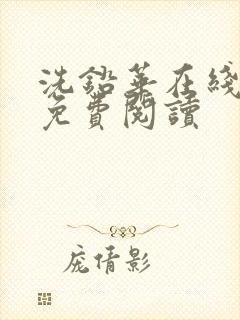 洗鉛華在綫
免費閱讀
庞倩影